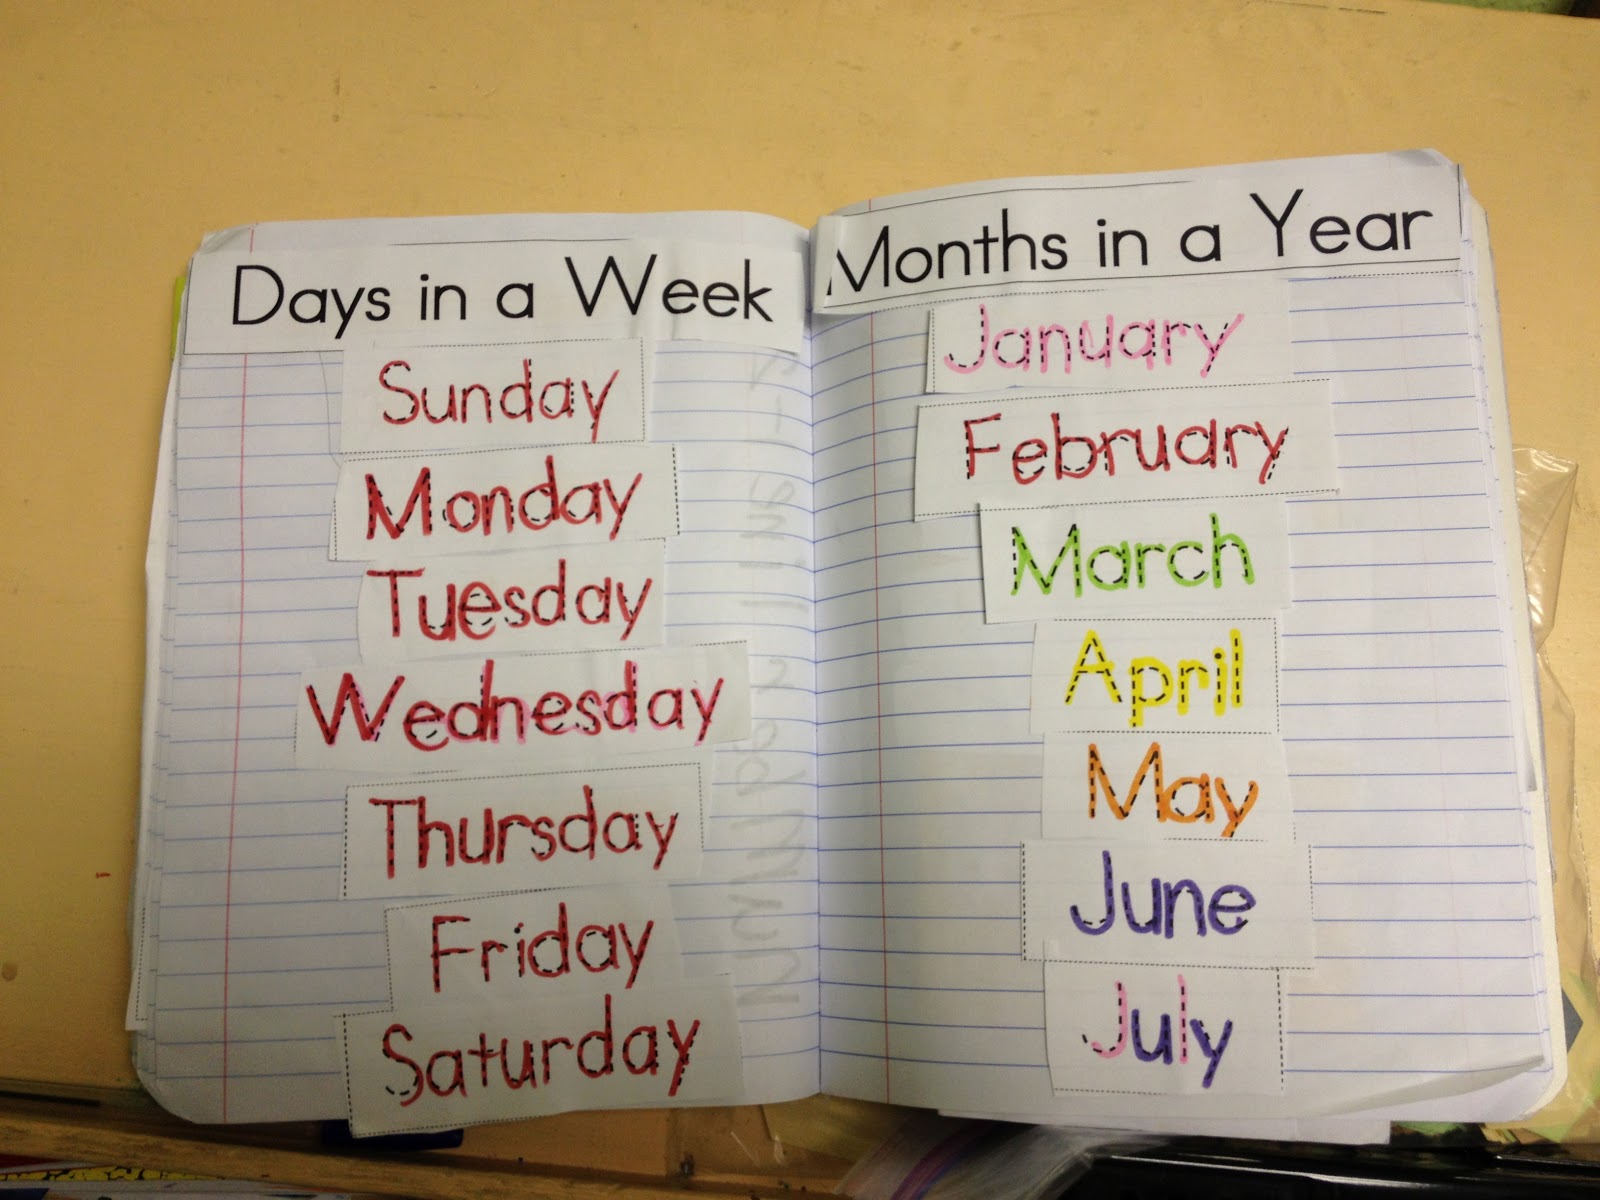 Days in a Week
Sunday
Monday
Tuesday
Wednesday
Thursday
Friday
Saturday
Months in a Year
January
February
March
April
May
June
July